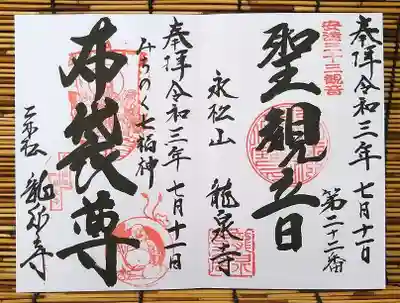 安達三十三観音
奉拝令和三年七月十一日
第二十二番
聖観立日
永松山 龍泉寺
奉拝令和三年七月十一日
みちのく七福神
布袋尊
二本松 龍泉寺